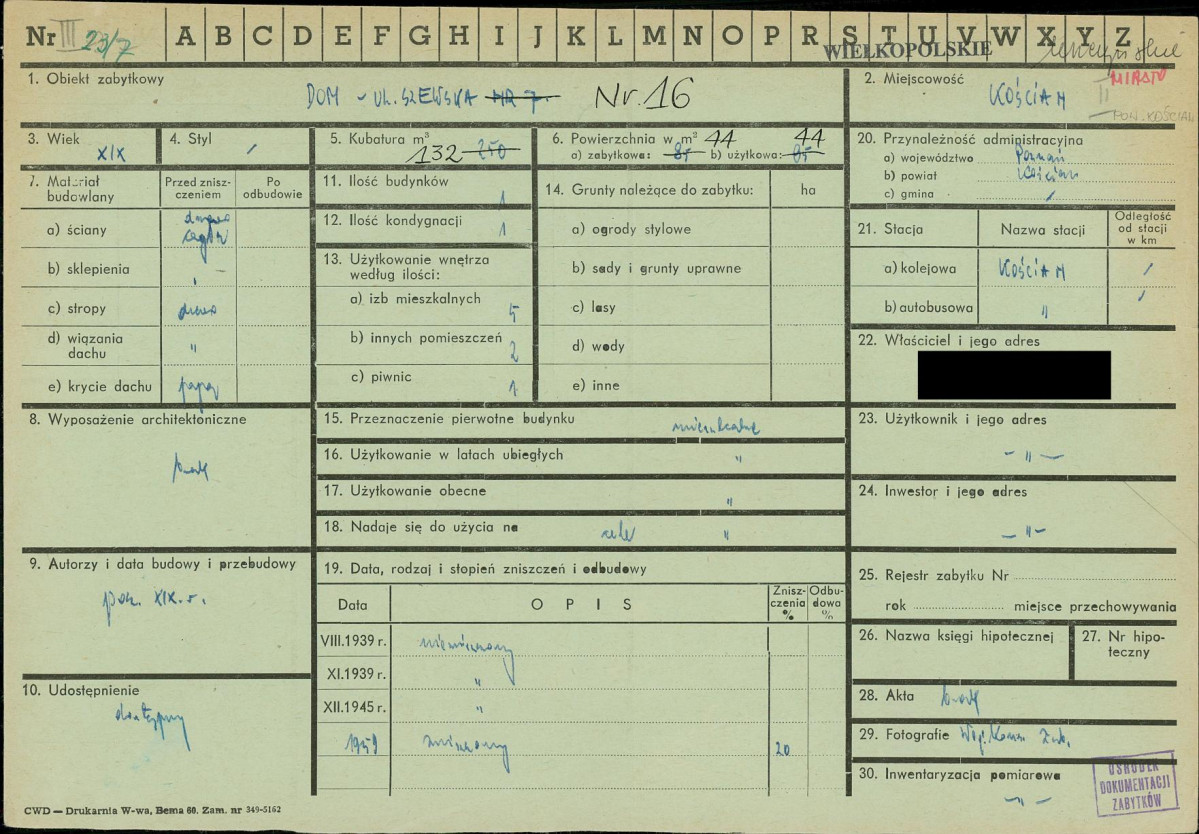 Nr III 23/7 A B C D E F G H I J K L M N O P R S T U V W X Y Z
WIELKOPOLSKIE
1. Obiekt zabytkowy
DOM - UL. SZEWSKA NR 7. Nr. 16
2. Miejscowość
KOŚCIAN
MIASTO
II
POW. KOŚCIAN
3. Wiek
XIX
4. Styl
/
5. Kubatura m³
132 250
6. Powierzchnia w m² 44 44
a) zabytkowa: 85 b) użytkowa: 85
20. Przynależność administracyjna
a) województwo Poznań
b) powiat Kościan
c) gmina /
7. Materiał budowlany
Przed zniszczeniem
Po odbudowie
a) ściany drewno cegła
b) sklepienia -
c) stropy drewno
d) wiązania dachu "
e) krycie dachu papa
11. Ilość budynków 1
12. Ilość kondygnacji 1
13. Użytkowanie wnętrza
według ilości:
a) izb mieszkalnych 5
b) innych pomieszczeń 2
c) piwnic 1
14. Grunty należące do zabytku: ha
a) ogrody stylowe
b) sady i grunty uprawne
c) lasy
d) wody
e) inne
21. Stacja
Nazwa stacji
Odległość od stacji w km
a) kolejowa KOŚCIAN /
b) autobusowa " /
22. Właściciel i jego adres
8. Wyposażenie architektoniczne
brak
15. Przeznaczenie pierwotne budynku mieszkalne
16. Użytkowanie w latach ubiegłych "
17. Użytkowanie obecne "
18. Nadaje się do użycia na cele "
23. Użytkownik i jego adres
- " -
24. Inwestor i jego adres
- " -
9. Autorzy i data budowy i przebudowy
pocz. XIX. w.
19. Data, rodzaj i stopień zniszczeń i odbudowy
Data
OPIS
Zniszczenia %
Odbudowa %
VIII.1939 r. niezniszczony
XI.1939 r. "
XII.1945 r. "
1959 zniszczony 20
10. Udostępnienie
dostępny
25. Rejestr zabytku Nr
rok miejsce przechowywania
26. Nazwa księgi hipotecznej
27. Nr hipoteczny
28. Akta brak
29. Fotografie Woj. Kons. Zab.
30. Inwentaryzacja pomiarowa
- " -
OŚRODEK
DOKUMENTACJI
ZABYTKÓW
CWD — Drukarnia W-wa, Bema 60. Zam. nr 349-5162